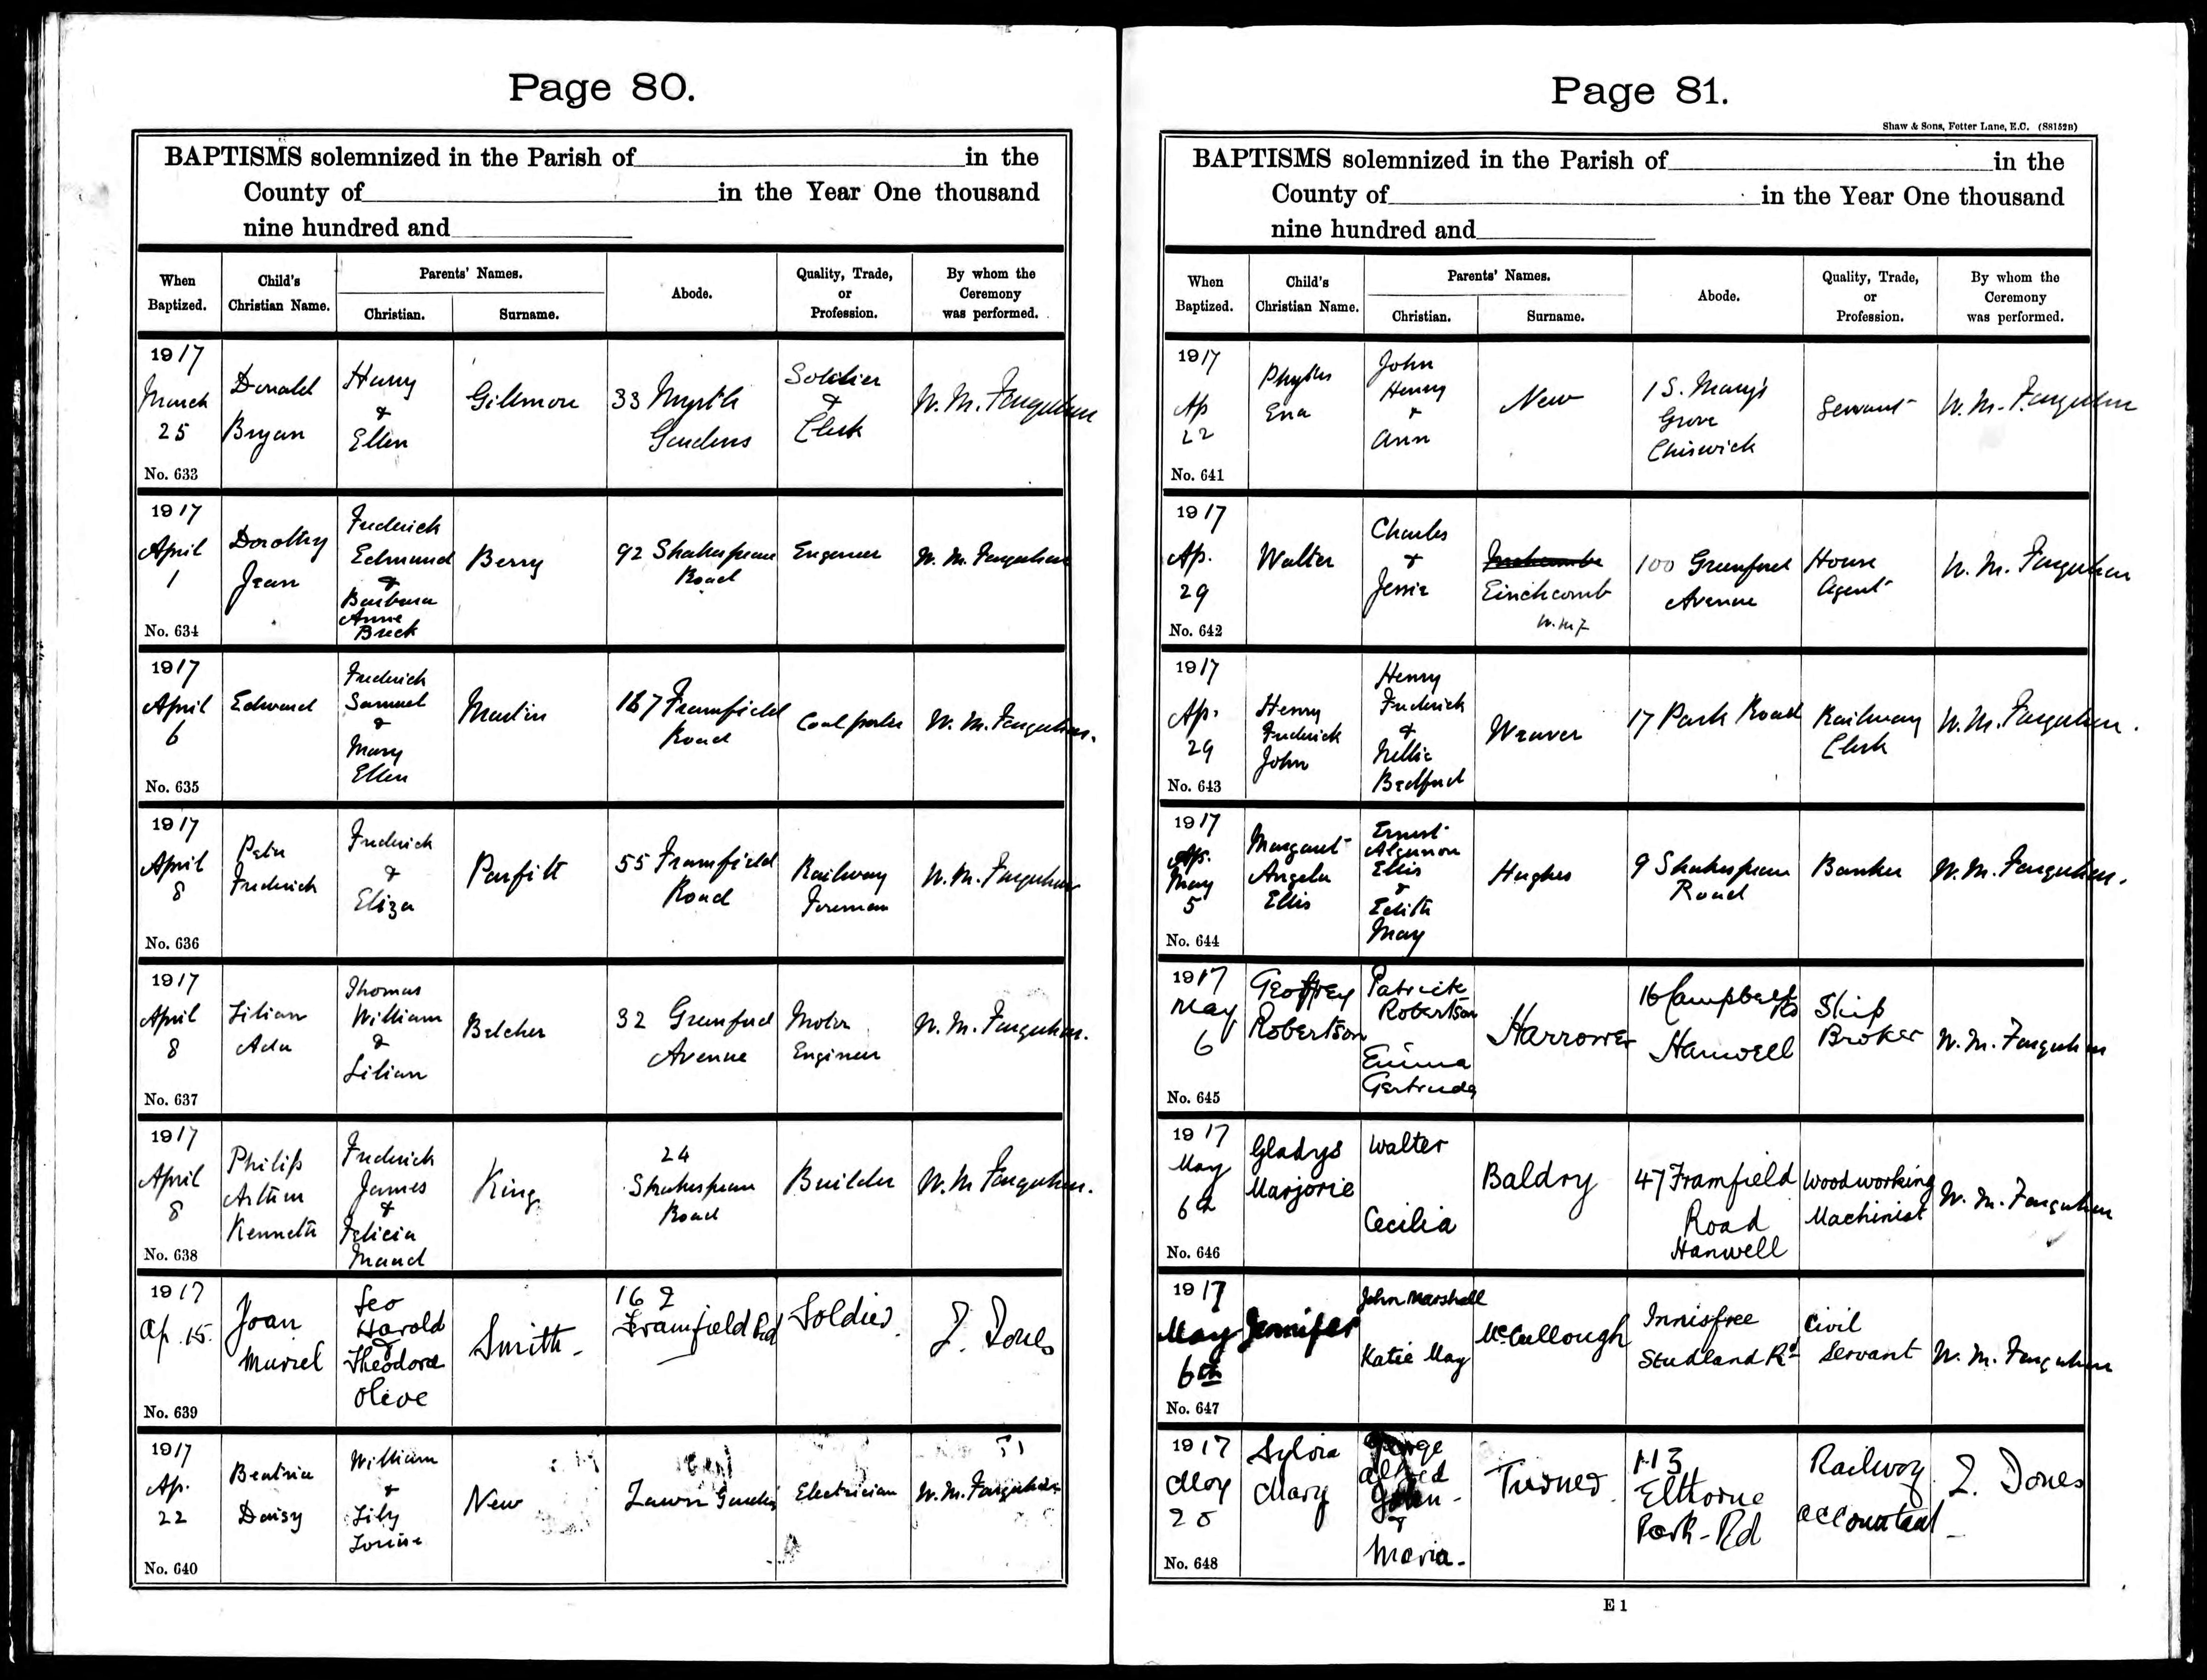 Page 80.
BAPTISMS solemnized in the Parish of in the
County of in the Year One thousand
nine hundred and
When Baptized.
Child's Christian Name.
Parents' Names.
Christian.
Surname.
Abode.
Quality, Trade, or Profession.
By whom the Ceremony was performed.
1917
March
25
No. 633
Donald
Bryan
Harry
&
Ellen
Gillmore
33 Myrtle
Gardens
Soldier
&
Clerk
W. M. Farquhar
1917
April
1
No. 634
Dorothy
Jean
Frederick
Edmund
&
Barbara
Anne
Breck
Berry
92 Shakespeare
Road
Engineer
W. M. Farquhar
1917
April
6
No. 635
Edward
Frederick
Samuel
&
Mary
Ellen
Martin
167 Framfield
Road
Coal porter
W. M. Farquhar.
1917
April
8
No. 636
Peter
Frederick
Frederick
&
Eliza
Parfitt
55 Framfield
Road
Railway
Foreman
W. M. Farquhar
1917
April
8
No. 637
Lilian
Ada
Thomas
William
&
Lilian
Belcher
32 Greenford
Avenue
Motor
Engineer
W. M. Farquhar.
1917
April
8
No. 638
Philip
Arthur
Kenneth
Frederick
James
&
Felicia
Maud
King
24
Shakespeare
Road
Builder
W. M Farquhar.
1917
Ap. 15.
No. 639
Joan
Muriel
Leo
Harold
&
Theodora
Olive
Smith.
162
Framfield Rd
Soldier.
J. Jones
1917
Ap.
22
No. 640
Beatrice
Daisy
William
&
Lily
Louise
New
Lawn Gardens
Electrician
W. M. Farquhar
Page 81.
Shaw & Sons, Fetter Lane, E.C. (S8152B)
BAPTISMS solemnized in the Parish of in the
County of in the Year One thousand
nine hundred and
When Baptized.
Child's Christian Name.
Parents' Names.
Christian.
Surname.
Abode.
Quality, Trade, or Profession.
By whom the Ceremony was performed.
1917
Ap
22
No. 641
Phyllis
Ena
John
Henry
&
Ann
New
1 S. Mary's
Grove
Chiswick
Servant
W. M. Farquhar
1917
Ap.
29
No. 642
Walter
Charles
&
Jessie
Einchcomb
W.M.F
100 Greenford
Avenue
House
Agent
W. M. Farquhar
1917
Ap.
29
No. 643
Henry
Frederick
John
Henry
Frederick
&
Nellie
Bedford
Weaver
17 Park Road
Railway
Clerk
W. M. Farquhar.
1917
Ap.
May
5
No. 644
Margaret
Angela
Ellis
Ernest
Algernon
Ellis
&
Edith
May
Hughes
9 Shakespeare
Road
Banker
W. M. Farquhar.
1917
May
6
No. 645
Geoffrey
Robertson
Patrick
Robertson
Emma
Gertrude
Harrower
16 Campbell Rd
Hanwell
Ship
Broker
W. M. Farquhar
1917
May
6th
No. 646
Gladys
Marjorie
Walter
Cecilia
Baldry
47 Framfield
Road
Hanwell
Woodworking
Machinist
W. M. Farquhar
1917
May
6th
No. 647
Jennifer
John Marshall
Katie May
McCullough
Innisfree
Studland Rd
Civil
Servant
W. M. Farquhar
1917
May
20
No. 648
Sylvia
Mary
George
Alfred
John
&
Maria.
Turner.
113
Elthorne
Park-Rd
Railway
Accountant
J. Jones
E 1